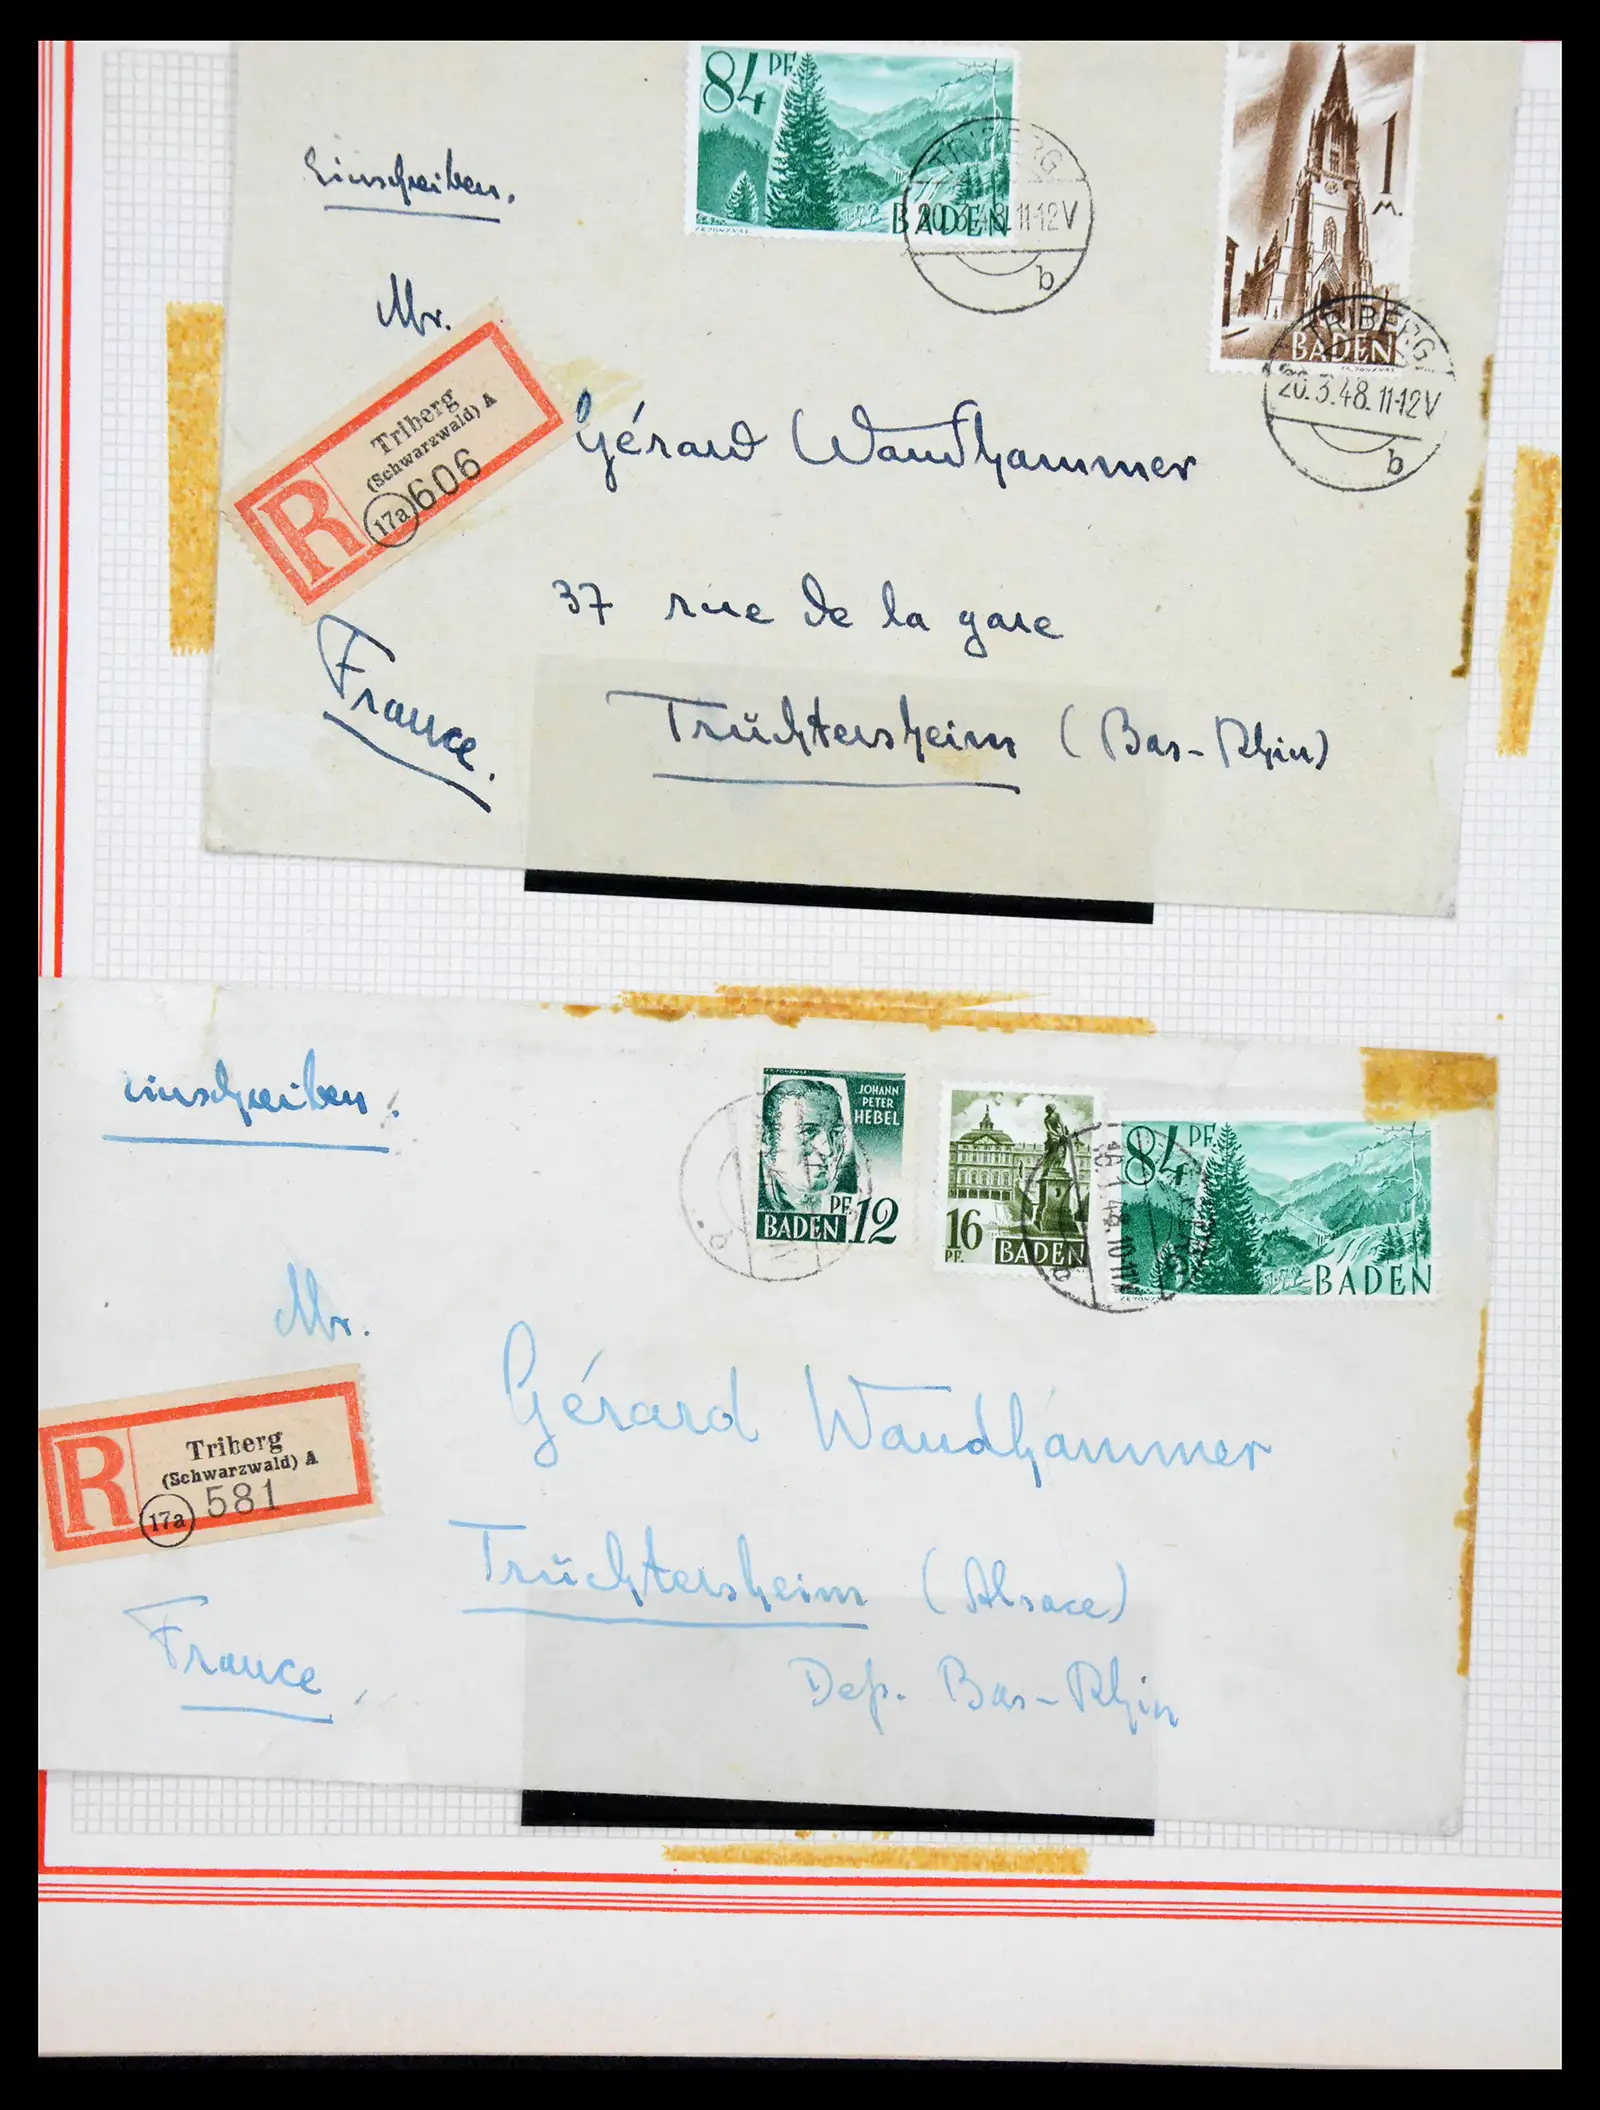 84 PF.
BADEN
TRIBERG
20.3.48.11-12V
b
1
M.
BADEN
TRIBERG
20.3.48.11-12V
b
Einschreiben.
Mr.
R
Triberg
(Schwarzwald) A
17a 606
Gérard Wandhammer
37 rue de la gare
Trŭchtersheim (Bas-Rhin)
France.
Einschreiben.
JOHANN
PETER
HEBEL
PF. 12
BADEN
16
PF.
BADEN
84 PF.
BADEN
b
Mr.
Gérard Wandhammer
R
Triberg
(Schwarzwald) A
17a 581
Trŭchtersheim (Alsace)
Dep. Bas-Rhin
France,